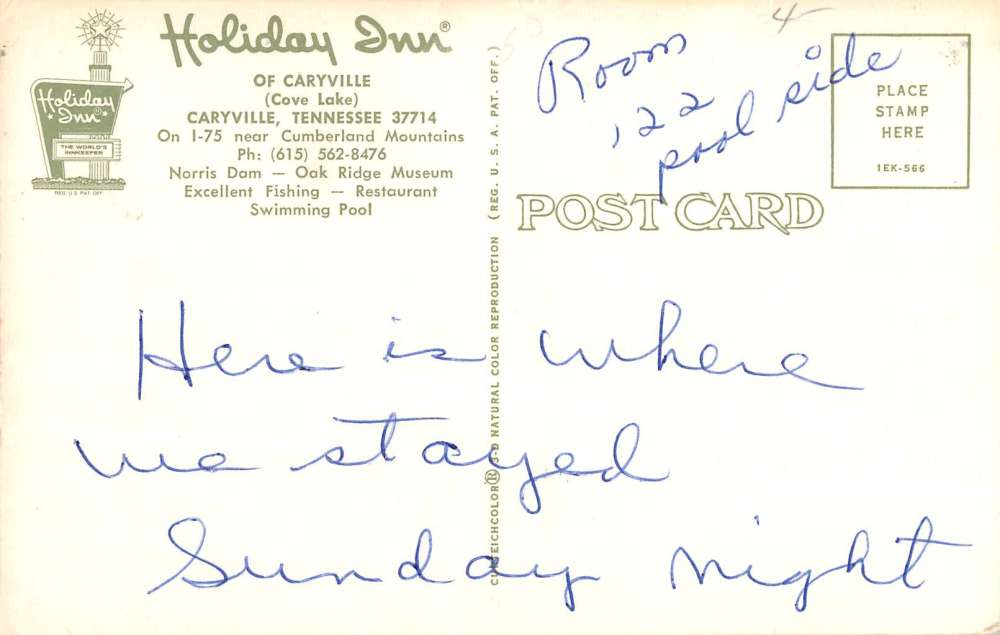 Holiday Inn®
OF CARYVILLE
(Cove Lake)
CARYVILLE, TENNESSEE 37714
On I-75 near Cumberland Mountains
Ph: (615) 562-8476
Norris Dam — Oak Ridge Museum
Excellent Fishing — Restaurant
Swimming Pool
Holiday
Inn®
THE WORLD'S
INNKEEPER
REG. U.S. PAT OFF
4
Room
122
pool side
PLACE
STAMP
HERE
1EK-566
POST CARD
CURTEICHCOLOR® 3-D NATURAL COLOR REPRODUCTION (REG. U. S. A. PAT. OFF.)
Here is where
we stayed
Sunday night